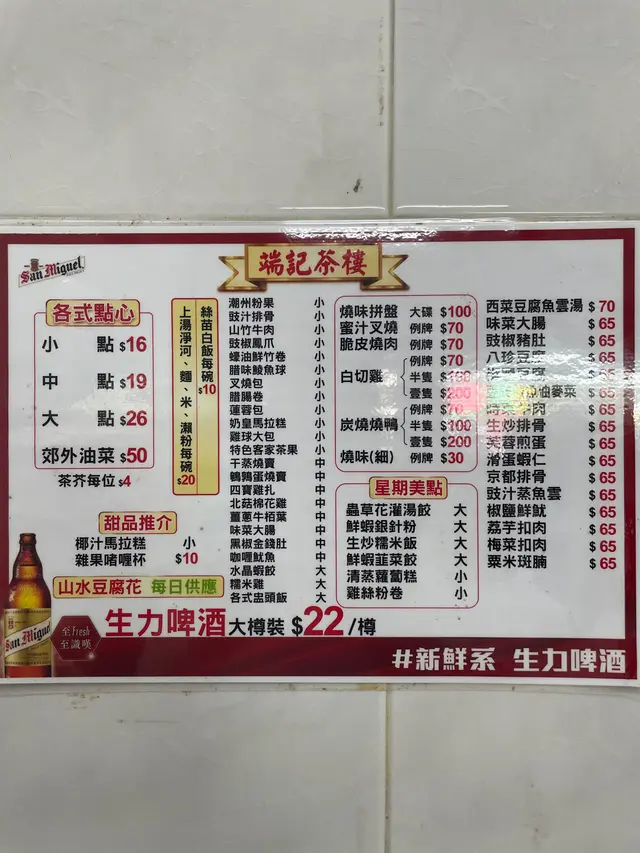 San Miguel
端記茶樓
各式點心
小點 $16
中點 $19
大點 $26
郊外油菜 $50
茶芥每位 $4
甜品推介
椰汁馬拉糕 小
雜果啫喱杯 $10
山水豆腐花 每日供應
絲苗白飯每碗 $10
上湯淨河、麵、米、瀨粉每碗 $20
潮州粉果 小
豉汁排骨 小
山竹牛肉 小
豉椒鳳爪 小
蠔油鮮竹卷 小
腊味鯪魚球 小
叉燒包 小
腊腸卷 小
蓮蓉包 小
奶皇馬拉糕 小
雞球大包 小
特色客家茶果 小
干蒸燒賣 中
鵪鶉蛋燒賣 中
四寶雞扎 中
北菇棉花雞 中
薑蔥牛栢葉 中
味菜大腸 中
黑椒金錢肚 中
咖喱魷魚 中
水晶蝦餃 大
糯米雞 大
各式盅頭飯 大
燒味拼盤 大碟 $100
蜜汁叉燒 例牌 $70
脆皮燒肉 例牌 $70
白切雞 例牌 $70
半隻
壹隻 $200
炭燒燒鴨 例牌 $70
半隻 $100
壹隻 $200
燒味(細) 例牌 $30
星期美點
蟲草花灌湯餃 大
鮮蝦銀針粉 大
生炒糯米飯 大
鮮蝦韮菜餃 大
清蒸蘿蔔糕 小
雞絲粉卷 小
西菜豆腐魚雲湯 $70
味菜大腸 $65
豉椒豬肚 $65
八珍豆腐 $65
$65
油麥菜 $65
$65
生炒排骨 $65
芙蓉煎蛋 $65
滑蛋蝦仁 $65
京都排骨 $65
豉汁蒸魚雲 $65
椒鹽鮮魷 $65
荔芋扣肉 $65
梅菜扣肉 $65
粟米斑腩 $65
生力啤酒 大樽裝 $22/樽
至Fresh
至識嘆
San Miguel
#新鮮系 生力啤酒